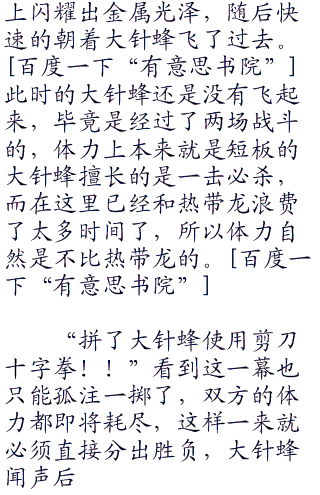 上闪耀出金属光泽，随后快
速的朝着大针蜂飞了过去。
[百度一下“有意思书院”]
此时的大针蜂还是没有飞起
来，毕竟是经过了两场战斗
的，体力上本来就是短板的
大针蜂擅长的是一击必杀，
而在这里已经和热带龙浪费
了太多时间了，所以体力自
然是不比热带龙的。[百度一
下“有意思书院”]
“拼了大针蜂使用剪刀
十字拳！！”看到这一幕也
只能孤注一掷了，双方的体
力都即将耗尽，这样一来就
必须直接分出胜负，大针蜂
闻声后